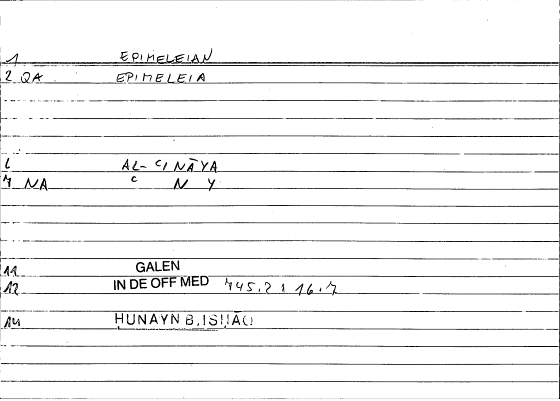 1 EPIMELEIAN
2 QA EPIMELEIA
6 AL- ʿINĀYA
7 NA ʿ N Y
11 GALEN
12 IN DE OFF MED 745.2 : 16.7
14 ḤUNAYN B. ISḤĀQ